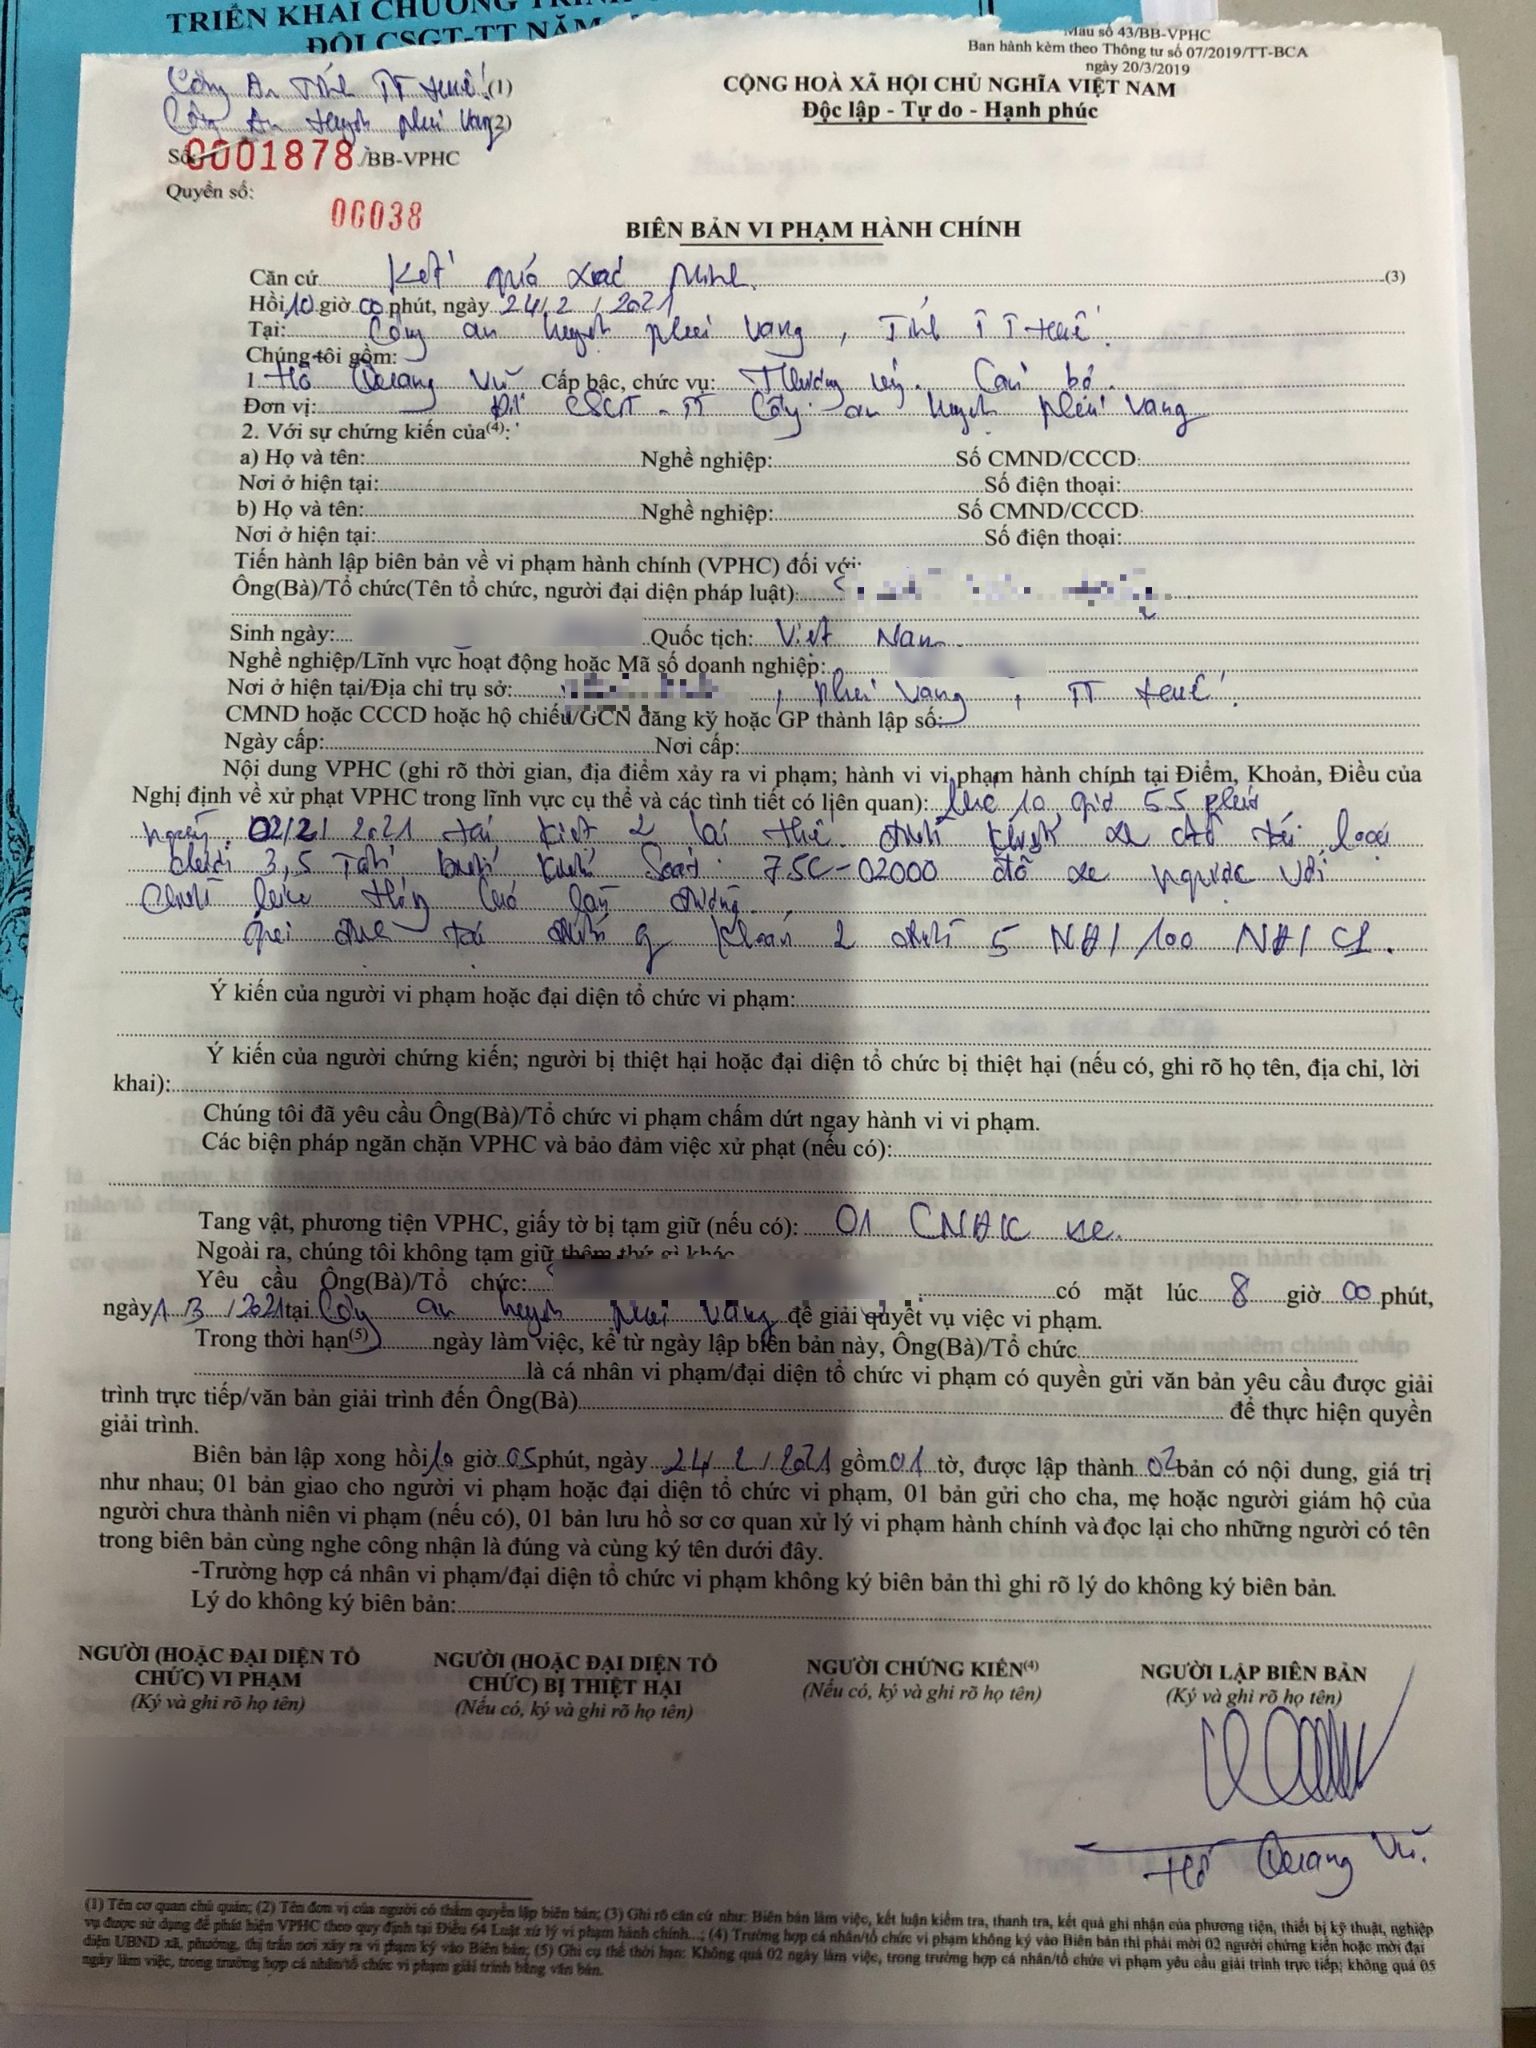 TRIỂN KHAI CHƯƠNG TRÌNH
ĐỘI CSGT-TT NĂM
Mẫu số 43/BB-VPHC
Ban hành kèm theo Thông tư số 07/2019/TT-BCA
ngày 20/3/2019
Công An Tỉnh TT Huế (1)
Công An Huyện Phú Vang (2)
CỘNG HOÀ XÃ HỘI CHỦ NGHĨA VIỆT NAM
Độc lập - Tự do - Hạnh phúc
Số: 0001878 /BB-VPHC
Quyển số:
00038
BIÊN BẢN VI PHẠM HÀNH CHÍNH
Căn cứ Kết quả xác minh (3)
Hồi 10 giờ 00 phút, ngày 24/2/2021
Tại: Công an huyện Phú Vang, Tỉnh TT Huế.
Chúng tôi gồm:
1. Hồ Quang Vũ Cấp bậc, chức vụ: Thượng úy. Cán bộ.
Đơn vị: Đội CSGT-TT Công an huyện Phú Vang
2. Với sự chứng kiến của(4):
a) Họ và tên: Nghề nghiệp: Số CMND/CCCD:
Nơi ở hiện tại: Số điện thoại:
b) Họ và tên: Nghề nghiệp: Số CMND/CCCD:
Nơi ở hiện tại: Số điện thoại:
Tiến hành lập biên bản về vi phạm hành chính (VPHC) đối với:
Ông(Bà)/Tổ chức(Tên tổ chức, người đại diện pháp luật):
Sinh ngày: Quốc tịch: Việt Nam
Nghề nghiệp/Lĩnh vực hoạt động hoặc Mã số doanh nghiệp:
Nơi ở hiện tại/Địa chỉ trụ sở: , Phú Vang, TT Huế.
CMND hoặc CCCD hoặc hộ chiếu/GCN đăng ký hoặc GP thành lập số:
Ngày cấp: Nơi cấp:
Nội dung VPHC (ghi rõ thời gian, địa điểm xảy ra vi phạm; hành vi vi phạm hành chính tại Điểm, Khoản, Điều của
Nghị định về xử phạt VPHC trong lĩnh vực cụ thể và các tình tiết có liên quan): Lúc 10 giờ 55 phút
ngày 02/2/2021 tại Kiệt 2 Lại Thế. xe ôtô tải loại
dưới 3,5 Tấn biển kiểm soát 75C-02000 đỗ xe ngược với
chiều lưu thông của làn đường.
Qui định tại điểm g khoản 2 điều 5 NĐ/100 NĐ/CP.
Ý kiến của người vi phạm hoặc đại diện tổ chức vi phạm:
Ý kiến của người chứng kiến; người bị thiệt hại hoặc đại diện tổ chức bị thiệt hại (nếu có, ghi rõ họ tên, địa chỉ, lời
khai):
Chúng tôi đã yêu cầu Ông(Bà)/Tổ chức vi phạm chấm dứt ngay hành vi vi phạm.
Các biện pháp ngăn chặn VPHC và bảo đảm việc xử phạt (nếu có):
Tang vật, phương tiện VPHC, giấy tờ bị tạm giữ (nếu có): 01 CNĐK xe.
Ngoài ra, chúng tôi không tạm giữ thêm thứ gì khác
Yêu cầu Ông(Bà)/Tổ chức: có mặt lúc 8 giờ 00 phút,
ngày 1/3/2021 tại Công an huyện Phú Vang để giải quyết vụ việc vi phạm.
Trong thời hạn(5) ngày làm việc, kể từ ngày lập biên bản này, Ông(Bà)/Tổ chức
là cá nhân vi phạm/đại diện tổ chức vi phạm có quyền gửi văn bản yêu cầu được giải
trình trực tiếp/văn bản giải trình đến Ông(Bà) để thực hiện quyền
giải trình.
Biên bản lập xong hồi 10 giờ 05 phút, ngày 24/2/2021, gồm 01 tờ, được lập thành 02 bản có nội dung, giá trị
như nhau; 01 bản giao cho người vi phạm hoặc đại diện tổ chức vi phạm, 01 bản gửi cho cha, mẹ hoặc người giám hộ của
người chưa thành niên vi phạm (nếu có), 01 bản lưu hồ sơ cơ quan xử lý vi phạm hành chính và đọc lại cho những người có tên
trong biên bản cùng nghe công nhận là đúng và cùng ký tên dưới đây.
-Trường hợp cá nhân vi phạm/đại diện tổ chức vi phạm không ký biên bản thì ghi rõ lý do không ký biên bản.
Lý do không ký biên bản:
NGƯỜI (HOẶC ĐẠI DIỆN TỔ
CHỨC) VI PHẠM
(Ký và ghi rõ họ tên)
NGƯỜI (HOẶC ĐẠI DIỆN TỔ
CHỨC) BỊ THIỆT HẠI
(Nếu có, ký và ghi rõ họ tên)
NGƯỜI CHỨNG KIẾN(4)
(Nếu có, ký và ghi rõ họ tên)
NGƯỜI LẬP BIÊN BẢN
(Ký và ghi rõ họ tên)
Hồ Quang Vũ.
(1) Tên cơ quan chủ quản; (2) Tên đơn vị của người có thẩm quyền lập biên bản; (3) Ghi rõ căn cứ như: Biên bản làm việc, kết luận kiểm tra, thanh tra, kết quả ghi nhận của phương tiện, thiết bị kỹ thuật, nghiệp
vụ được sử dụng để phát hiện VPHC theo quy định tại Điều 64 Luật xử lý vi phạm hành chính...; (4) Trường hợp cá nhân/tổ chức vi phạm không ký vào Biên bản thì phải mời 02 người chứng kiến hoặc mời đại
diện UBND xã, phường, thị trấn nơi xảy ra vi phạm ký vào Biên bản; (5) Ghi cụ thể thời hạn: Không quá 02 ngày làm việc, trong trường hợp cá nhân/tổ chức vi phạm yêu cầu giải trình trực tiếp; không quá 05
ngày làm việc, trong trường hợp cá nhân/tổ chức vi phạm giải trình bằng văn bản.